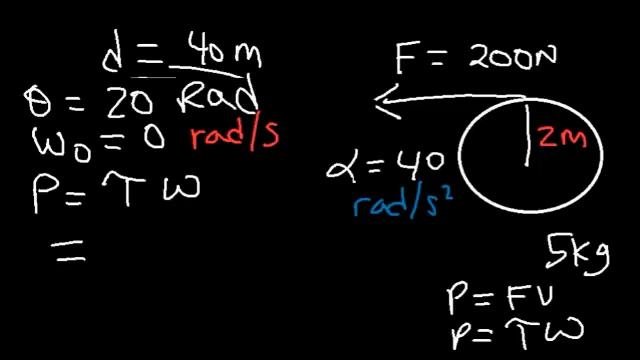 d = 40 m
θ = 20 Rad
W₀ = 0 rad/s
P = τ W
=
F = 200N
2m
α = 40
rad/s²
5kg
P = FV
P = τ W